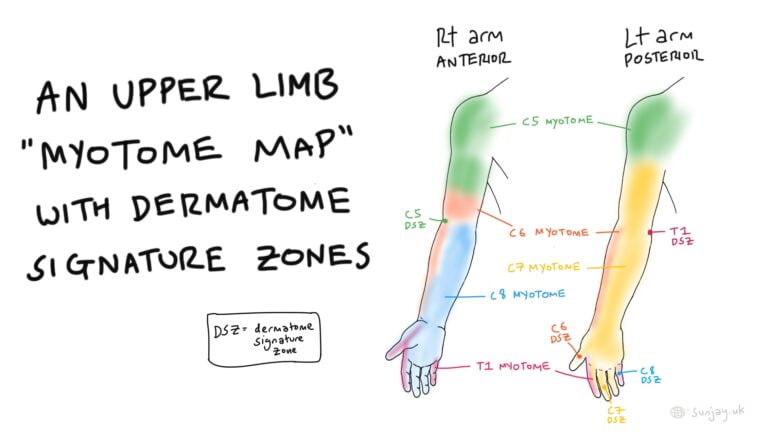 AN UPPER LIMB
"MYOTOME MAP"
WITH DERMATOME
SIGNATURE ZONES
DSZ = dermatome
signature
zone
Rt arm
ANTERIOR
Lt arm
POSTERIOR
C5 MYOTOME
C5
DSZ
C6 MYOTOME
T1
DSZ
C7 MYOTOME
C8 MYOTOME
C6
DSZ
T1 MYOTOME
C8
DSZ
C7
DSZ
:sunjay.uk